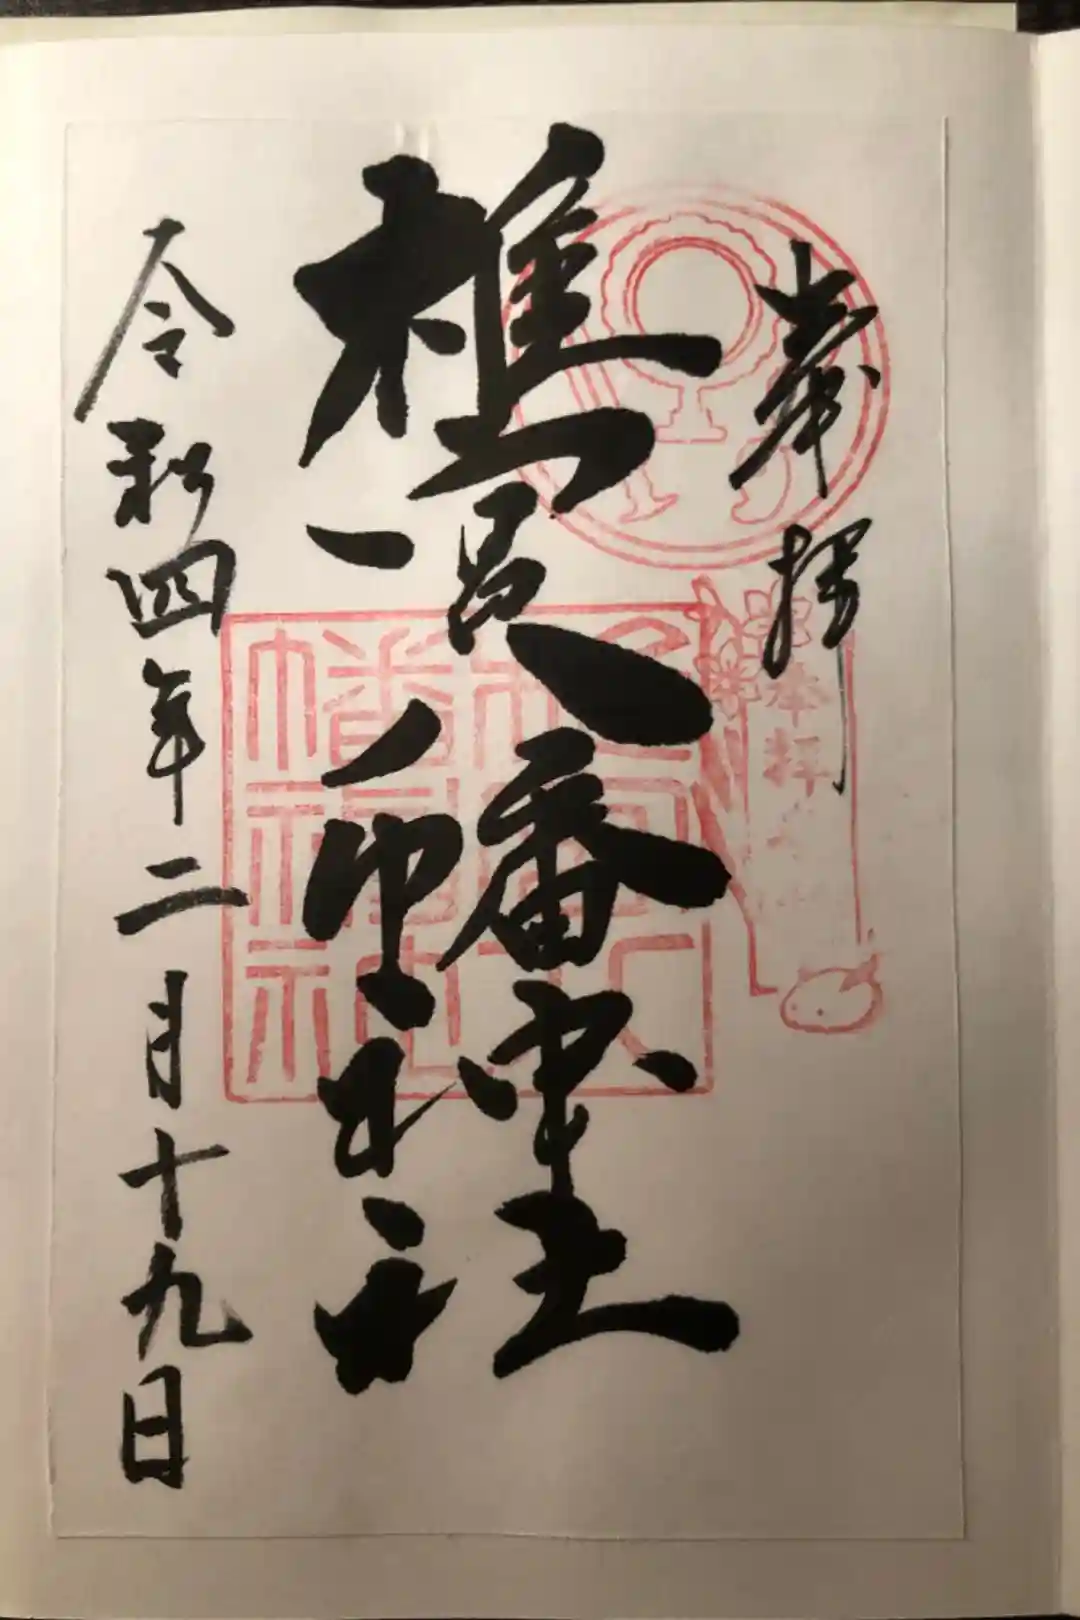 奉拝
椎宮八幡神社
令和四年二月十九日
椎宮八
幡神社
奉拝